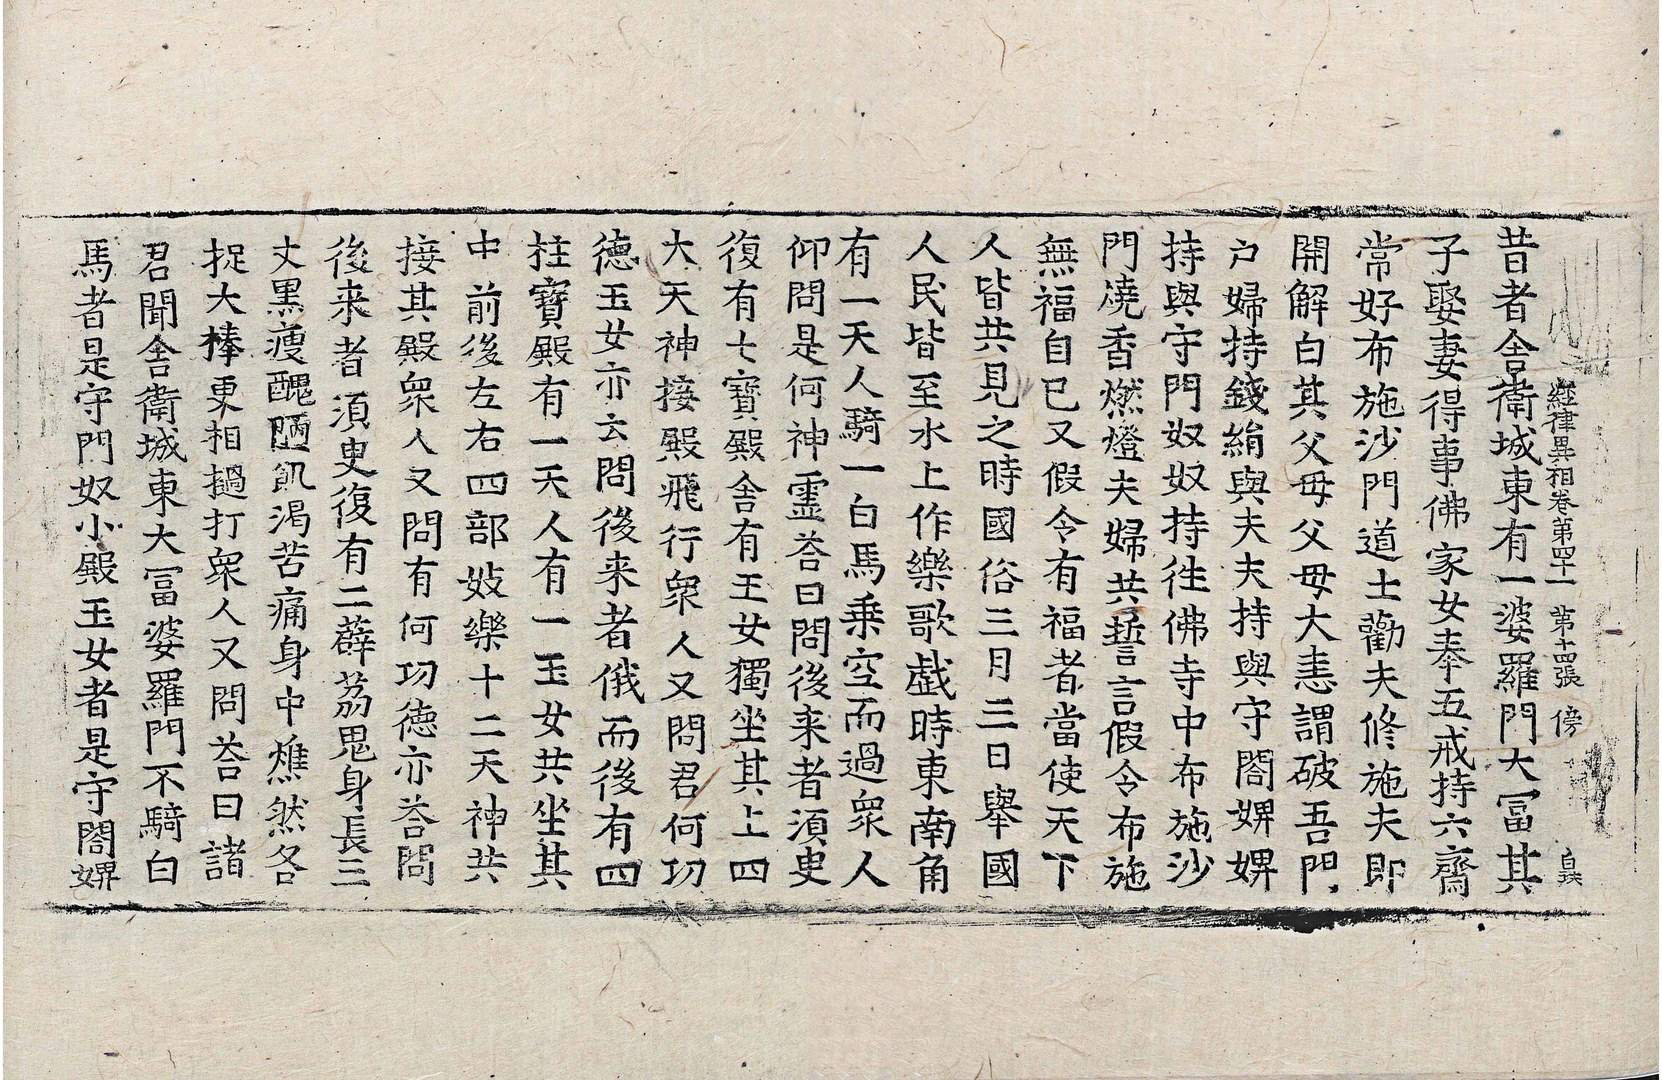 經律異相卷第四十一 第十四張 傍
昔者舍衛城東有一婆羅門大冨其
子娶妻得事佛家女奉五戒持六齋
常好布施沙門道士勸夫修施夫即
開解白其父母父母大恚謂破吾門
戶婦持錢絹與夫夫持與守閤婢婢
持與守門奴奴持徃佛寺中布施沙
門燒香燃燈夫婦共誓言假令布施
無福自已又假令有福者當使天下
人皆共見之時國俗三月三日舉國
人民皆至水上作樂歌戱時東南角
有一天人騎一白馬乗空而過衆人
仰問是何神靈荅曰問後来者須臾
復有七寶殿舍有王女獨坐其上四
大天神接殿飛行衆人又問君何功
德玉女亦云問後来者俄而後有四
柱寶殿有一天人有一玉女共坐其
中前後左右四部妓樂十二天神共
接其殿衆人又問有何功德亦荅問
後来者須臾復有二薜荔鬼身長三
丈黒痩醜陋飢渴苦痛身中燋然各
捉大棒更相撾打衆人又問荅曰諸
君聞舍衛城東大冨婆羅門不騎白
馬者是守門奴小殿玉女者是守閤婢